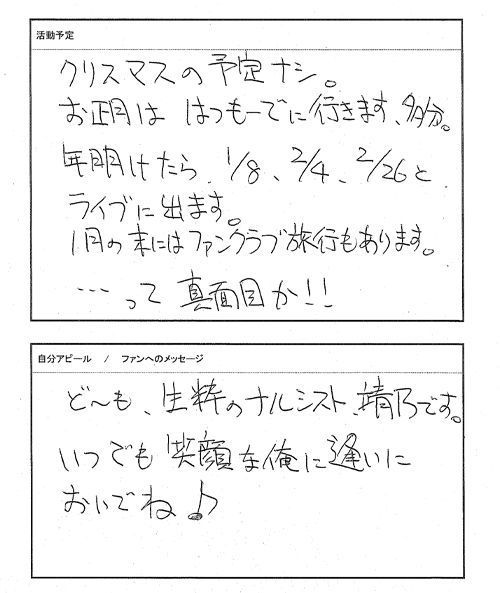 活動予定
クリスマスの予定ナシ。
お正月は はつもーでに行きます、多分。
年明けたら、1/8、2/4、2/26と
ライブに出ます。
1月の末にはファンクラブ旅行もあります。
…って 真面目か!!
自分アピール / ファンへのメッセージ
ど〜も、生粋のナルシスト、靖乃です。
いつでも笑顔な俺に逢いに
おいでね♪